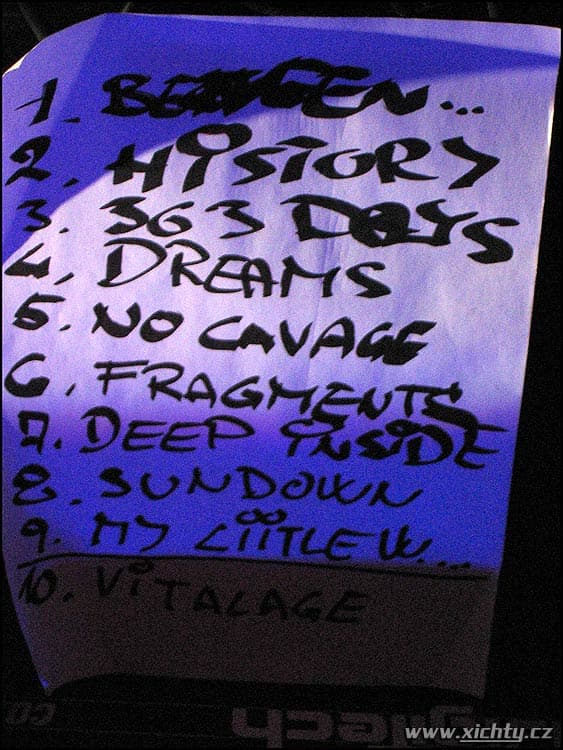 1. BERGEN...
2. HISTORY
3. 363 DAYS
4, DREAMS
5. NO CAVAGE
6. FRAGMENTS
7. DEEP INSIDE
8. SUNDOWN
9. MY LIITLE W....
10. VITALAGE
www.xichty.cz